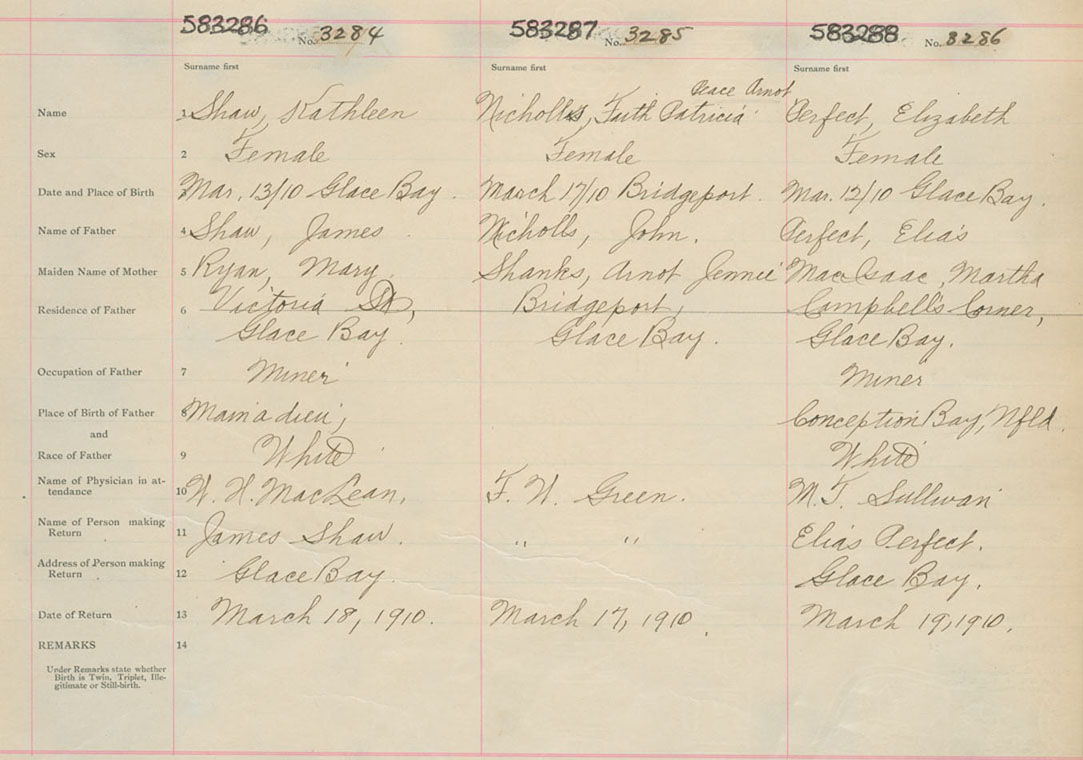 583286 No. 3284 583287 No. 3285 583288 No. 3286
Surname first Surname first Surname first
Peace Arnot
Name 1 Shaw, Kathleen Nicholls, Faith Patricia Perfect, Elizabeth
Sex 2 Female Female Female
Date and Place of Birth 3 Mar. 13/10 Glace Bay. March 17/10 Bridgeport. Mar. 12/10 Glace Bay.
Name of Father 4 Shaw, James Nicholls, John. Perfect, Elias
Maiden Name of Mother 5 Ryan, Mary. Shanks, Arnot Jennie MacIsaac, Martha
Residence of Father 6 Victoria St, Bridgeport, Campbell's Corner,
Glace Bay. Glace Bay. Glace Bay.
Occupation of Father 7 Miner Miner
Place of Birth of Father 8 Mainadieu, Conception Bay, Nfld.
and
Race of Father 9 White White
Name of Physician in at-
tendance 10 W. H. MacLean, F. W. Green. M. T. Sullivan
Name of Person making
Return 11 James Shaw. " " Elias Perfect.
Address of Person making
Return 12 Glace Bay. Glace Bay.
Date of Return 13 March 18, 1910. March 17, 1910. March 19, 1910.
REMARKS 14
Under Remarks state whether
Birth is Twin, Triplet, Ille-
gitimate or Still-birth.